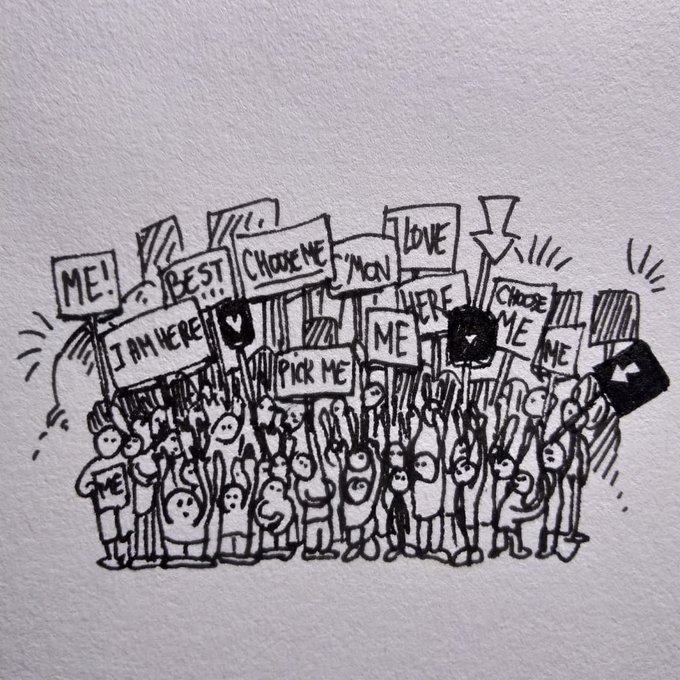 ME!
BEST
!!!
CHOOSE ME
C'MON
I LOVE
I AM HERE
HERE
ME
CHOOSE
ME
ME
PICK ME
ME